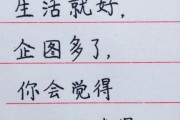 生活就好，
企图多了，
你会觉得